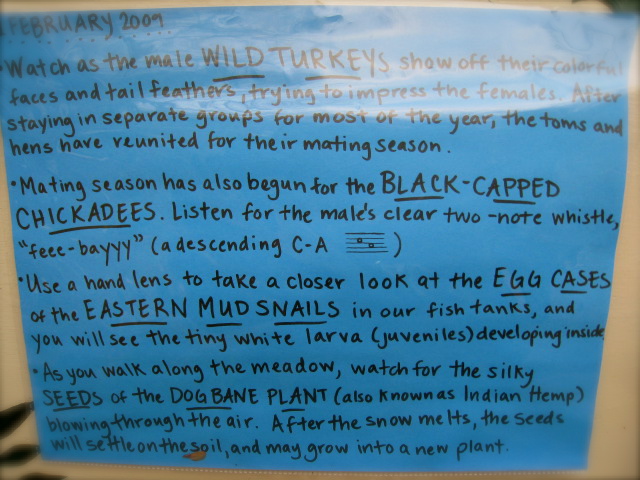 FEBRUARY 2009
• Watch as the male WILD TURKEYS show off their colorful
faces and tail feathers, trying to impress the females. After
staying in separate groups for most of the year, the toms and
hens have reunited for their mating season.
• Mating season has also begun for the BLACK-CAPPED
CHICKADEES. Listen for the male's clear two-note whistle,
"feee-bayyy" (a descending C-A )
• Use a hand lens to take a closer look at the EGG CASES
of the EASTERN MUD SNAILS in our fish tanks, and
you will see the tiny white larva (juveniles) developing inside
• As you walk along the meadow, watch for the silky
SEEDS of the DOGBANE PLANT (also known as Indian Hemp)
blowing through the air. After the snow melts, the seeds
will settle on the soil, and may grow into a new plant.